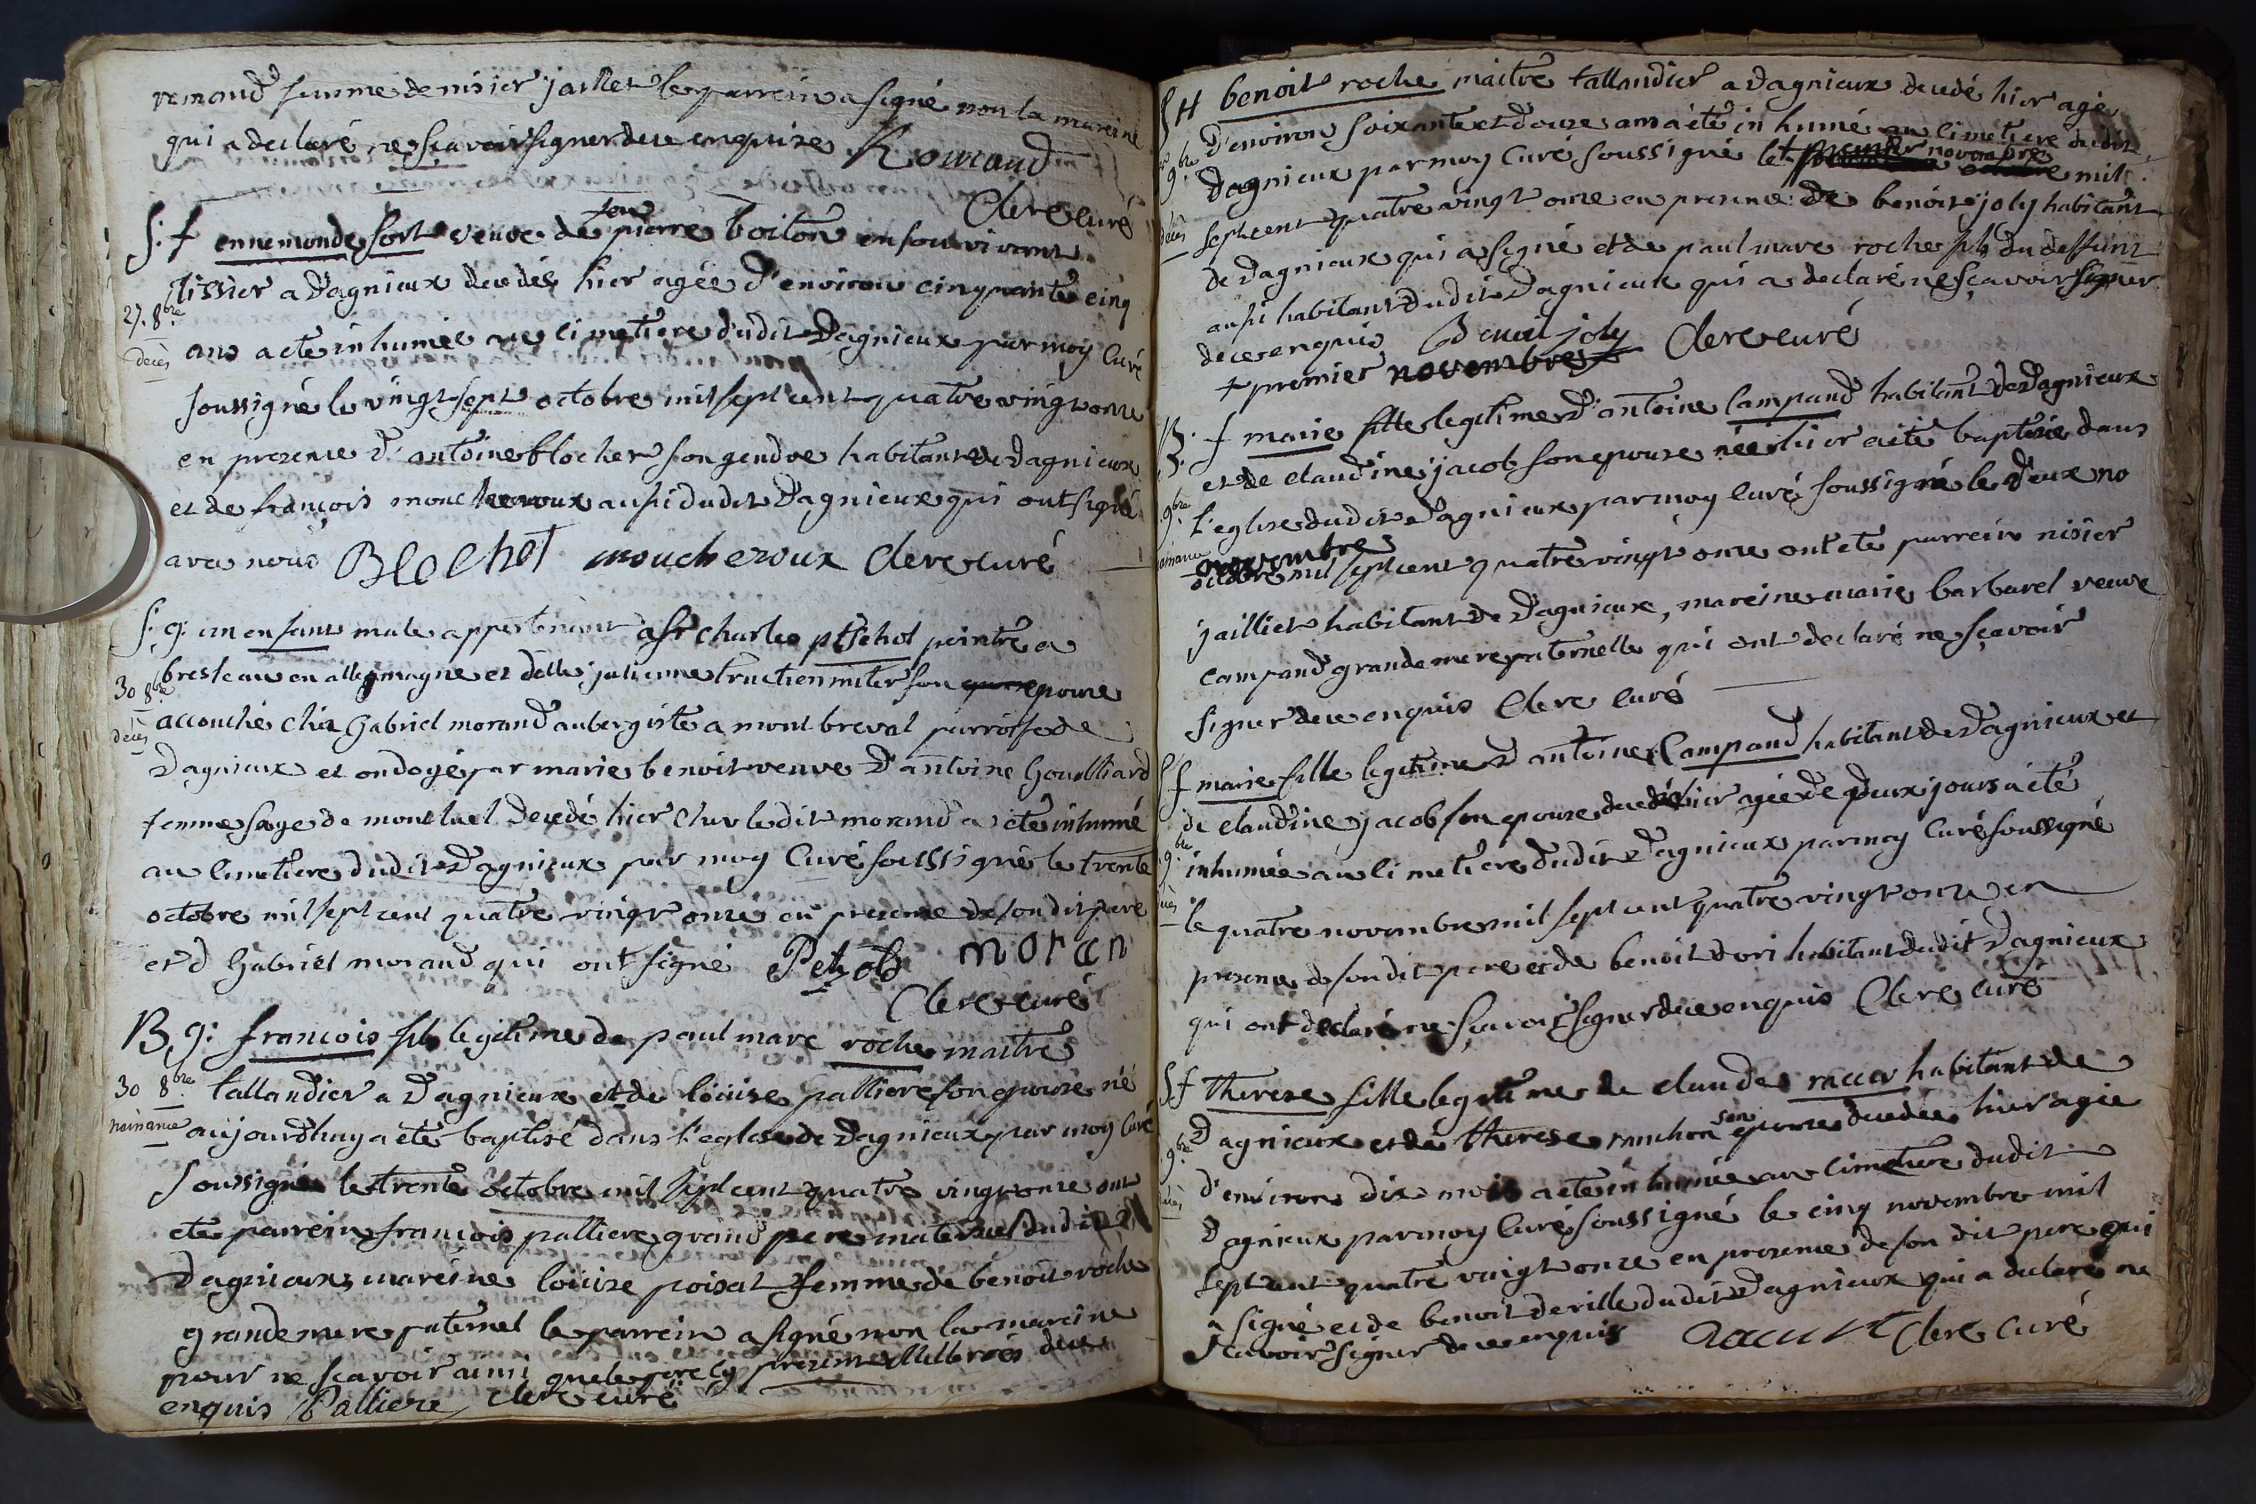 remond femme de nisier jaillet le parrein a signé non la mareine
qui a declaré ne sçavoir signer de ce enquise Romand
Clere curé
S: f ennemonde sort veuve de feu pierre boiton en son vivant
tissier a Dagnieux decedée hier agée d'environ cinquante cinq
27. 8bre
décès
ans a eté inhumée au cimetiere dudit Dagnieux par moy Curé
soussigné le vingt sept octobre mil sept cent quatre vingt onze
en presence d'antoine blochet son gendre habitant de Dagnieux
et de françois moucheroux aussi dudit Dagnieux qui ont signé
avec nous Blochet moucheroux Clere curé
S: g: un enfant male appartenant a sr charles ptschol peintre a
bresleau en allemagne et delle julienne son epouse
30 8bre
décès
accouchée chez Gabriel morand aubergiste a mont breval parroisse de
Dagnieux et ondoyé par marie benoit veuve d'antoine Goulliard
femme sage de montluel decedé hier chez ledit morand a eté inhumé
au cimetiere dudit Dagnieux par moy Curé soussigné le trente
octobre mil sept cent quatre vingt onze en presence de son dit pere
et d Gabriel morand qui ont signé Petzold moran
Clere curé
B. g: françois fils legitime de paul marc roche maitre
30 8bre
naissance
tallandier a Dagnieux et de loüise palliere son epouse né
aujourd'huy a eté baptisé dans l'eglise de Dagnieux par moy Curé
soussigné le trente octobre mil sept cent quatre vingt onze ont
eté parrein françois palliere grand pere maternel dudit
Dagnieux, mareine loüise poisat femme de benoit roche
grande mere paternel le parrein a signé non la mareine
pour ne sçavoir ainsi que le pere cy present de ce
enquis Palliere Clere curé
S H benoit roche maitre tallandier a Dagnieux decedé hier agé
d'environ soixante et douze ans a eté inhumé au cimetiere dudit
9bre
décès
Dagnieux par moy Curé soussigné le + premier novembre mil
sept cent quatre vingt onze en presence de benoit joly habitant
de Dagnieux qui a signé et de paul marc roche fils du deffunt
aussi habitant dudit Dagnieux qui a declaré ne sçavoir signer
de ce enquis Benoit joly Clere curé
+ premier novembre
B. f marie fille legitime d'antoine Campand habitant de Dagnieux
et de claudine jacob son epouse née hier a eté baptisée dans
9bre
naissance
l'eglise dudit Dagnieux par moy curé soussigné le deux no
novembre
octobre mil sept cent quatre vingt onze ont eté parrein nisier
jaillet habitant de Dagnieux, mareine marie barbarel veuve
campand grande mere paternelle qui ont declaré ne sçavoir
signer de ce enquis Clere curé
S f marie fille legitime d'antoine Campand habitant de Dagnieux et
de claudine jacob son epouse decedée hier agée de deux jours a eté
9bre
décès
inhumée au cimetiere dudit Dagnieux par moy Curé soussigné
le quatre novembre mil sept cent quatre vingt onze en
presence de son dit pere et de benoit dori habitant dudit Dagnieux
qui ont declaré ne sçavoir signer de ce enquis Clere curé
S f therese fille legitime de claude habitant de
Dagnieux et de therese son epouse decedée hier agée
9bre
décès
d'environ dix mois a eté inhumée au cimetiere dudit
Dagnieux par moy Curé soussigné le cinq novembre mil
sept cent quatre vingt onze en presence de son dit pere qui
a signé et de benoit deville dudit Dagnieux qui a declaré ne
sçavoir signer de ce enquis Clere curé